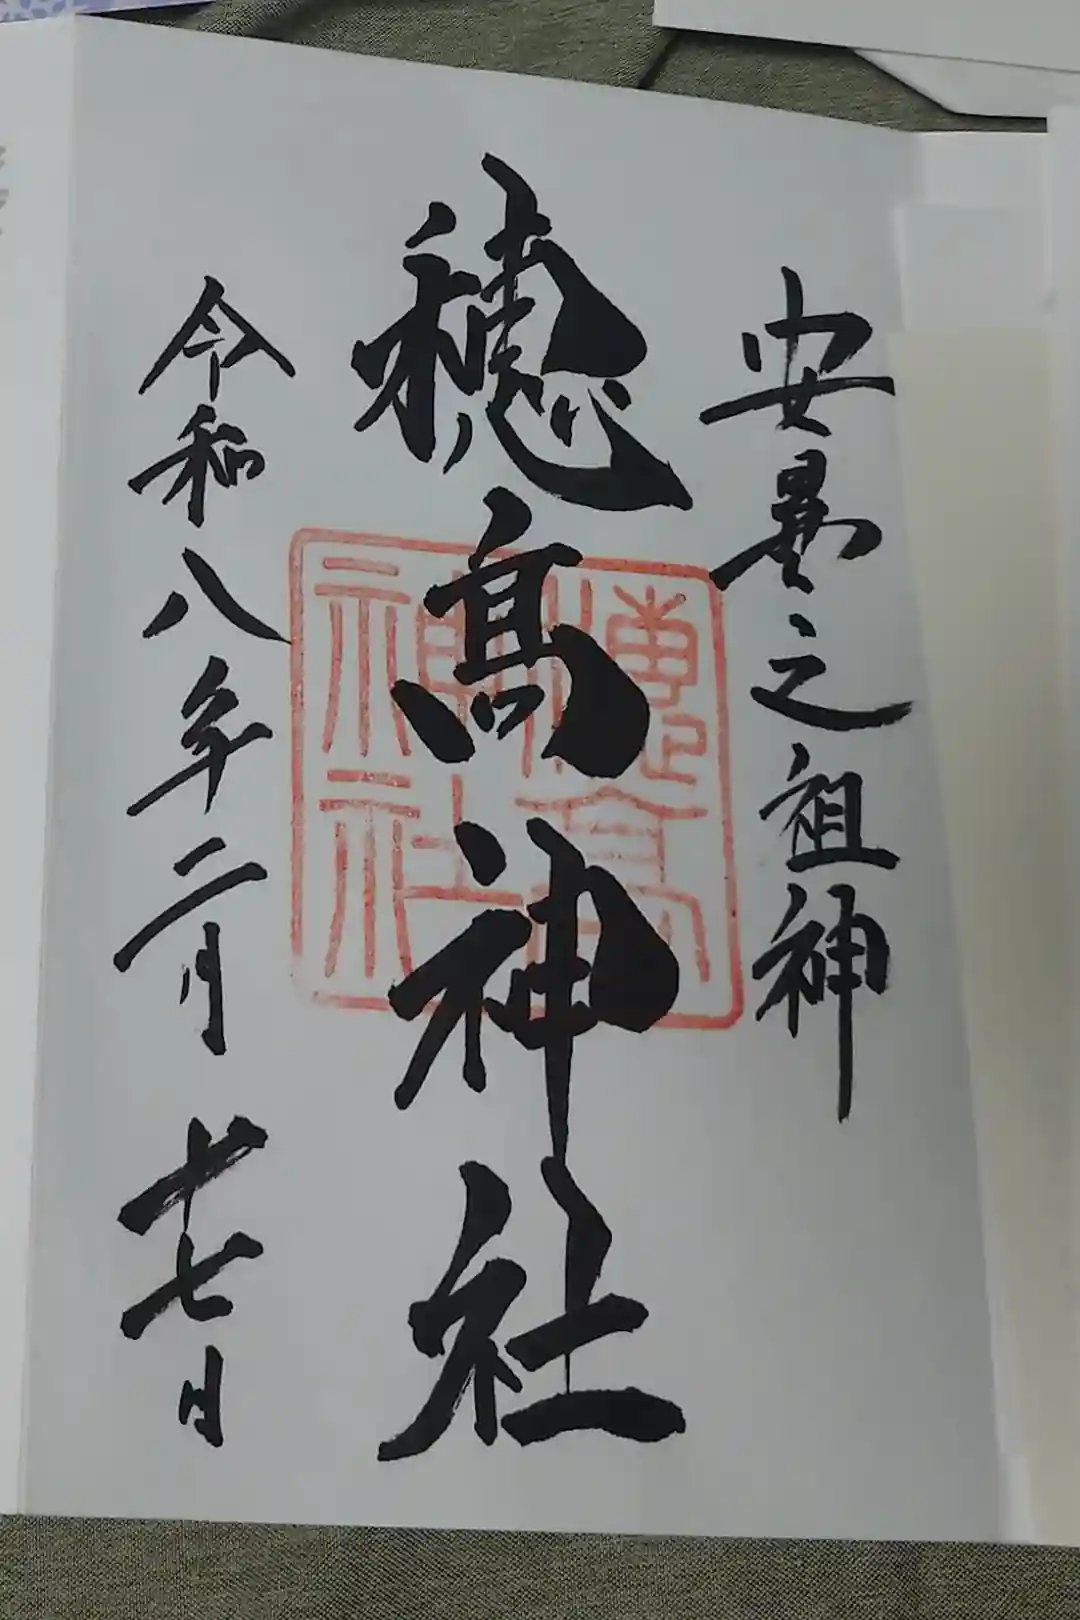 安曇之祖神
穗髙神社
令和八年二月廿七日
穗髙
神社